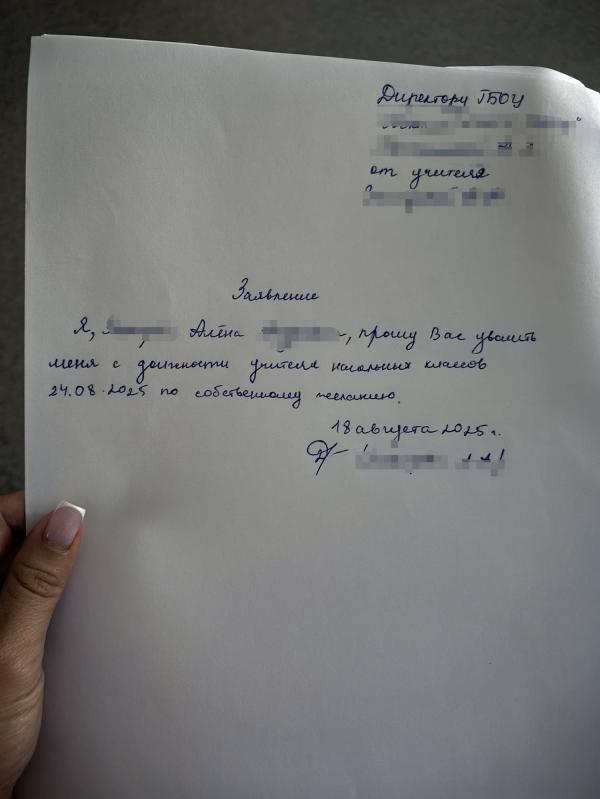 Директору ГБОУ
от учителя
Заявление
Я, Алёна , прошу Вас уволить
меня с должности учителя начальных классов
24.08.2025 по собственному желанию.
18 августа 2025 г.